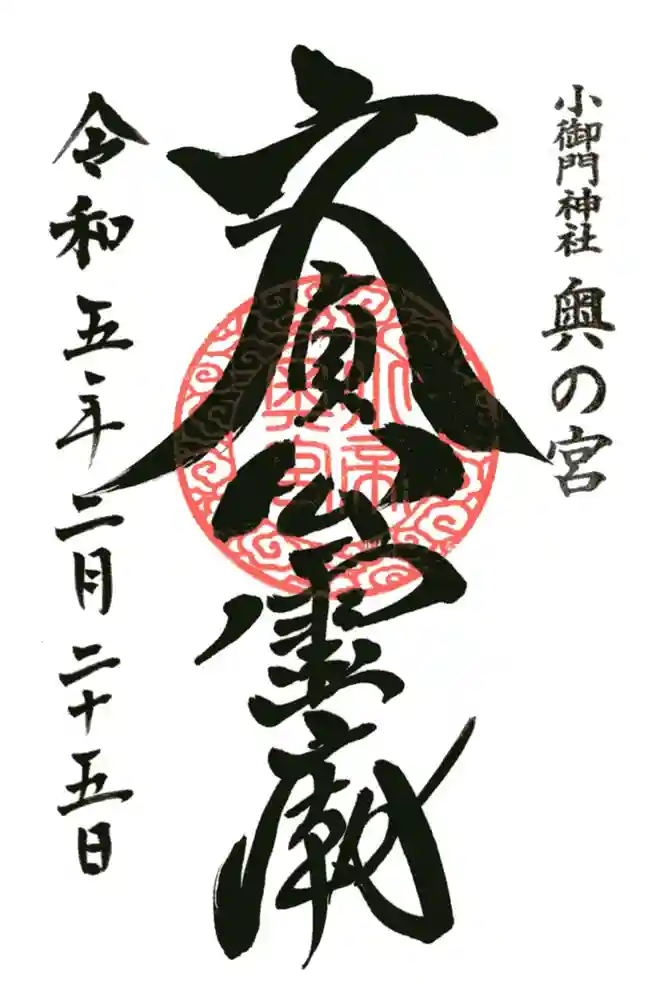 小御門神社 奥の宮
文貞公霊廟
令和五年二月二十五日